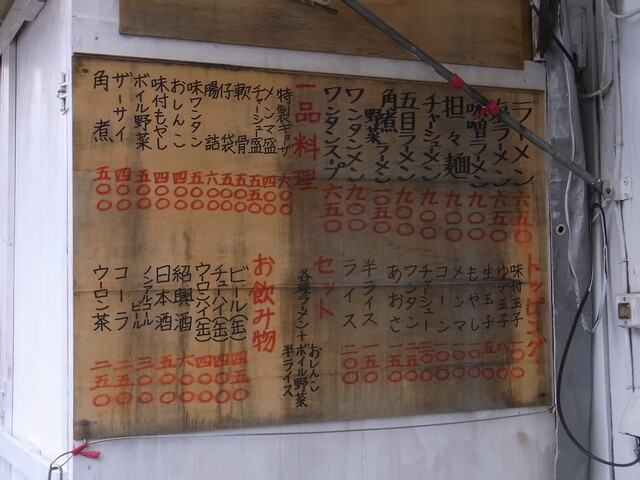 ラーメン 六五〇
塩ラーメン 六五〇
味噌ラーメン 九〇〇
担々麺 九〇〇
チャーシューメン 九〇〇
五目ラーメン 九〇〇
角煮野菜ラーメン 一〇五〇
ワンタンメン 九〇〇
ワンタンスープ 六五〇
一品料理
特製ギョーザ 六〇〇
メンマ盛 四〇〇
チャーシュー盛 五五〇
軟骨 五〇〇
仔袋 五〇〇
腸詰 六〇〇
味ワンタン 五〇〇
おしんこ 四〇〇
味付もやし 四〇〇
ボイル野菜 五〇〇
ザーサイ 四〇〇
角煮 五〇〇
トッピング
味付玉子
ゆで玉子
生玉子
もやし
メンマ
コーン
チャーシュー
ワンタン
あおさ
半ライス 一五〇
ライス 二〇〇
セット
各種ラーメン+ボイル野菜
おしんこ
半ライス
お飲み物
ビール(缶) 四五〇
チューハイ(缶) 四〇〇
ウーロンハイ(缶) 四〇〇
紹興酒 六〇〇
日本酒 五〇〇
ノンアルコールビール 三五〇
コーラ 二五〇
ウーロン茶 二五〇